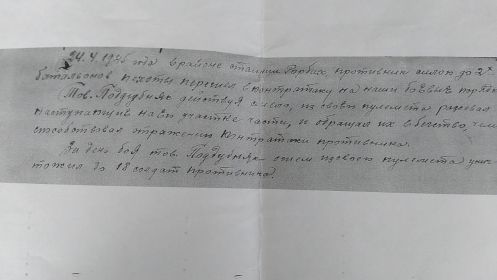 24.4.1945 года в районе станции противник силою до 2х
батальонов пехоты перешел в контратаку на наши боевые
Тов. Поддубняк действуя смело, из своего пулемета
наступающие на участке части, и обращая их в бегство, чем
способствовал отражению контратаки противника.
За день боя тов. Поддубняк огнем своего пулемета унич-
тожил до 18 солдат противника.